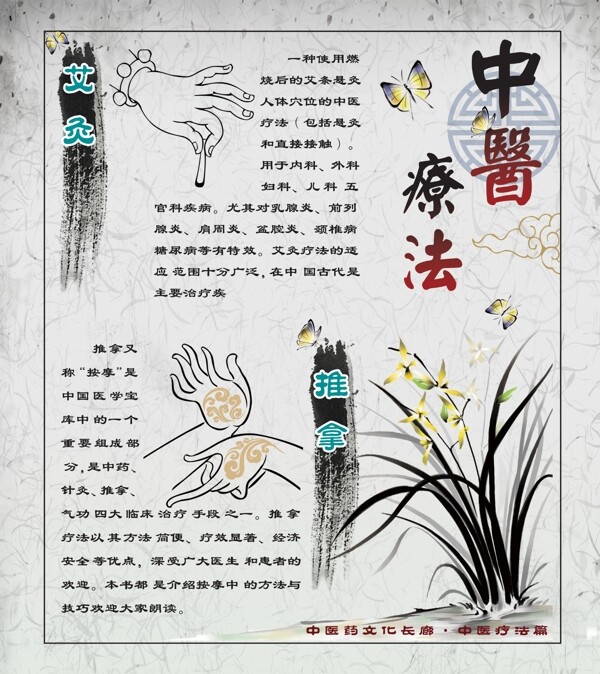 中醫
療法
艾灸
一种使用燃
烧后的艾条悬灸
人体穴位的中医
疗法（包括悬灸
和直接接触）。
用于内科、外科
妇科、儿科 五
官科疾病。尤其对乳腺炎、前列
腺炎、肩周炎、盆腔炎、颈椎病
糖尿病等有特效。艾灸疗法的适
应 范围十分广泛，在中 国古代是
主要治疗疾
推拿
推拿又
称“按摩”是
中国医学宝
库中的一个
重要组成部
分，是中药、
针灸、推拿、
气功 四大临床 治疗 手段 之一。推拿
疗法以 其方法 简便、疗效显著、经济
安全等优点， 深受广大医生 和患者的
欢迎。本书都 是介绍按摩中 的方法与
技巧欢迎大家朗读。
中医药文化长廊·中医疗法篇